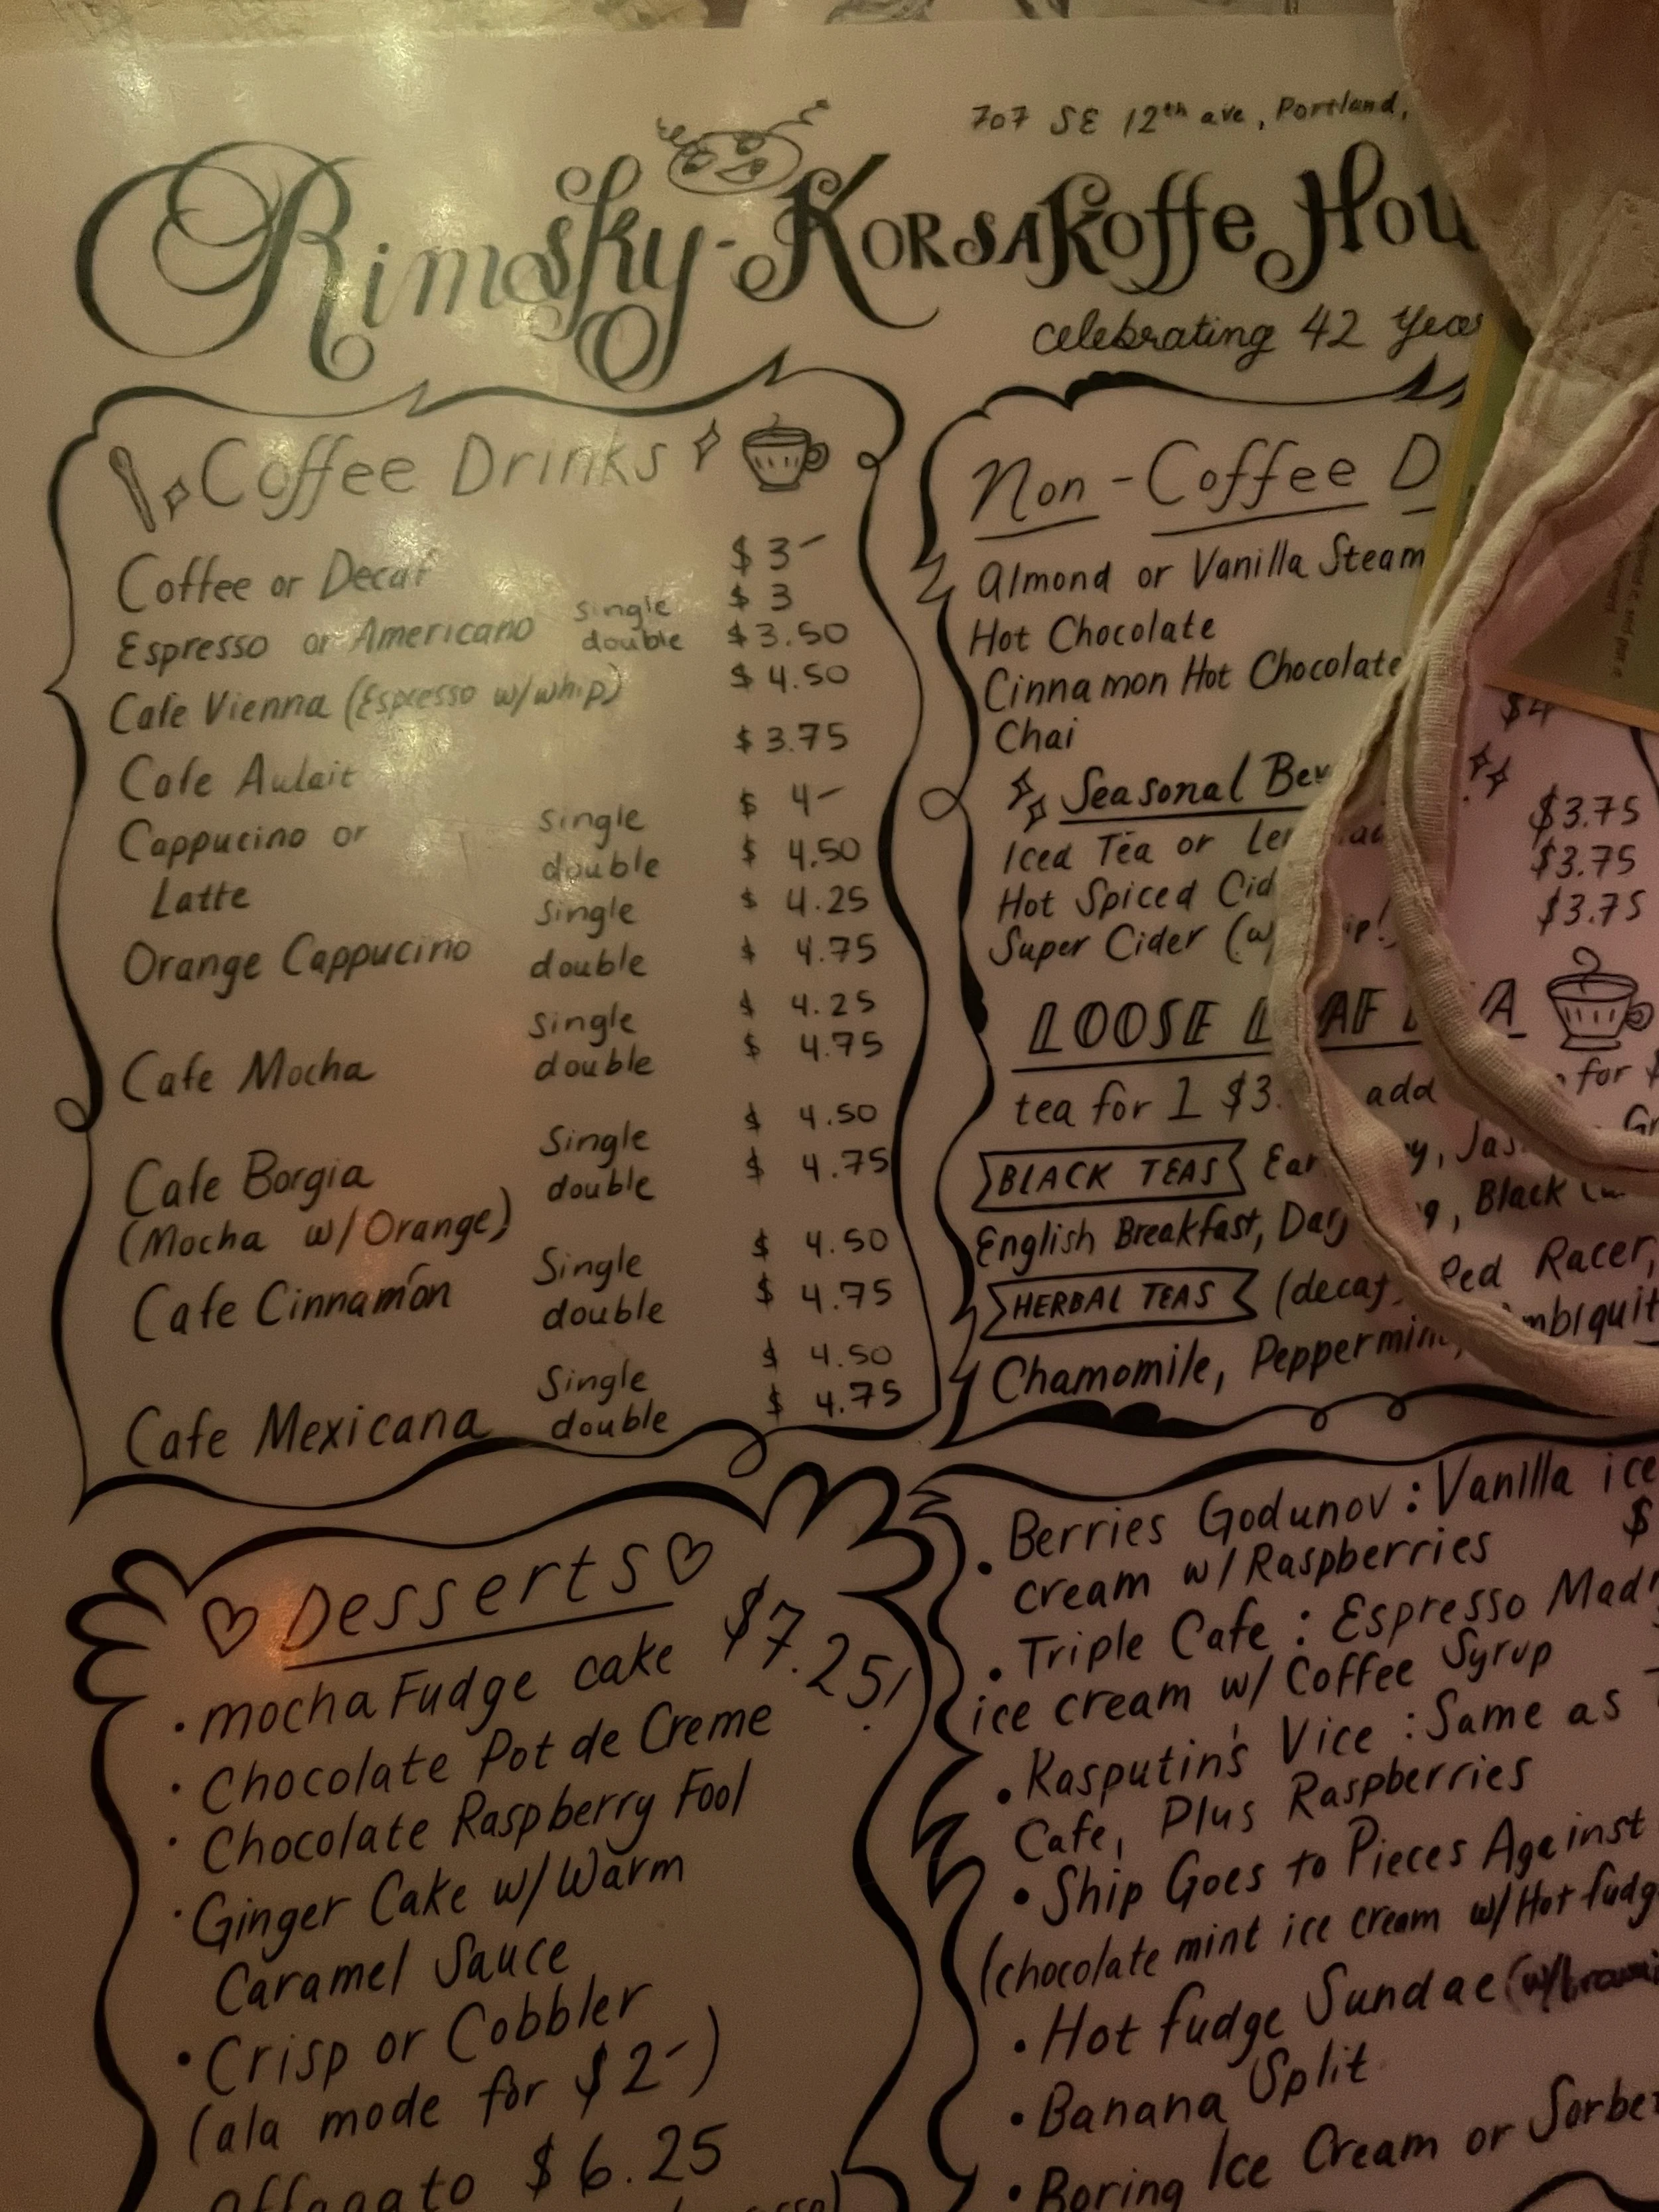 707 SE 12th ave, Portland,
Rimsky-Korsakoffe Hou
celebrating 42 Years
Coffee Drinks
Coffee or Decaf $3-
Espresso or Americano single $3
double $3.50
Cafe Vienna (Espresso w/whip) $4.50
Cafe Aulait $3.75
Cappucino or single $4-
Latte double $4.50
Orange Cappucino single $4.25
double $4.75
Cafe Mocha single $4.25
double $4.75
Cafe Borgia single $4.50
(Mocha w/Orange) double $4.75
Cafe Cinnamon Single $4.50
double $4.75
Cafe Mexicana Single $4.50
double $4.75
Non-Coffee D
Almond or Vanilla Steam
Hot Chocolate
Cinnamon Hot Chocolate
Chai $4
Seasonal Bev
Iced Tea or $3.75
Hot Spiced Cid $3.75
Super Cider (w/ ip!) $3.75
LOOSE L AF A
tea for 1 $3. add for $
BLACK TEAS Ear y, Jas
English Breakfast, Darj g, Black
HERBAL TEAS (decaf) Red Racer,
Chamomile, Peppermint, mbiguit
Desserts
$7.25!
• mocha Fudge cake
• Chocolate Pot de Creme
• Chocolate Raspberry Fool
• Ginger Cake w/Warm
Caramel Sauce
• Crisp or Cobbler
(ala mode for $2-)
Affogato $6.25
• Berries Godunov: Vanilla ice
cream w/Raspberries $
• Triple Cafe: Espresso Mad
ice cream w/ Coffee Syrup
• Rasputin's Vice: Same as T
Cafe, Plus Raspberries
• Ship Goes to Pieces Against
(chocolate mint ice cream w/Hot fudg
• Hot fudge Sundae
• Banana Split
• Boring Ice Cream or Sorbet